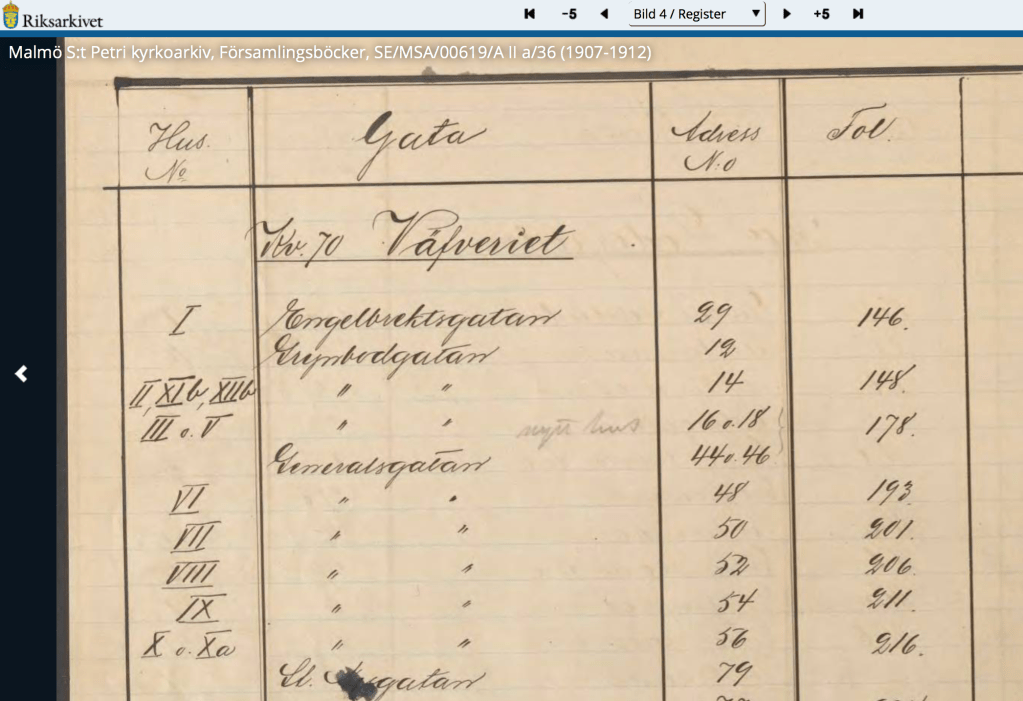 Riksarkivet
-5 Bild 4 / Register +5
Malmö S:t Petri kyrkoarkiv, Församlingsböcker, SE/MSA/00619/A II a/36 (1907-1912)
Hus. No Gata Adress N:o Fol.
Kv. 70 Väfveriet
I Engelbrektsgatan 29 146.
Grynbodgatan 12
II, XIb, XIIb " " 14 148.
III o. V " " nytt hus 16 o. 18 178.
Generalsgatan 44 o. 46
VI " " 48 193
VII " " 50 201.
VIII " " 52 206.
IX " " 54 211.
X o. Xa " " 56 216.
St. gatan 79